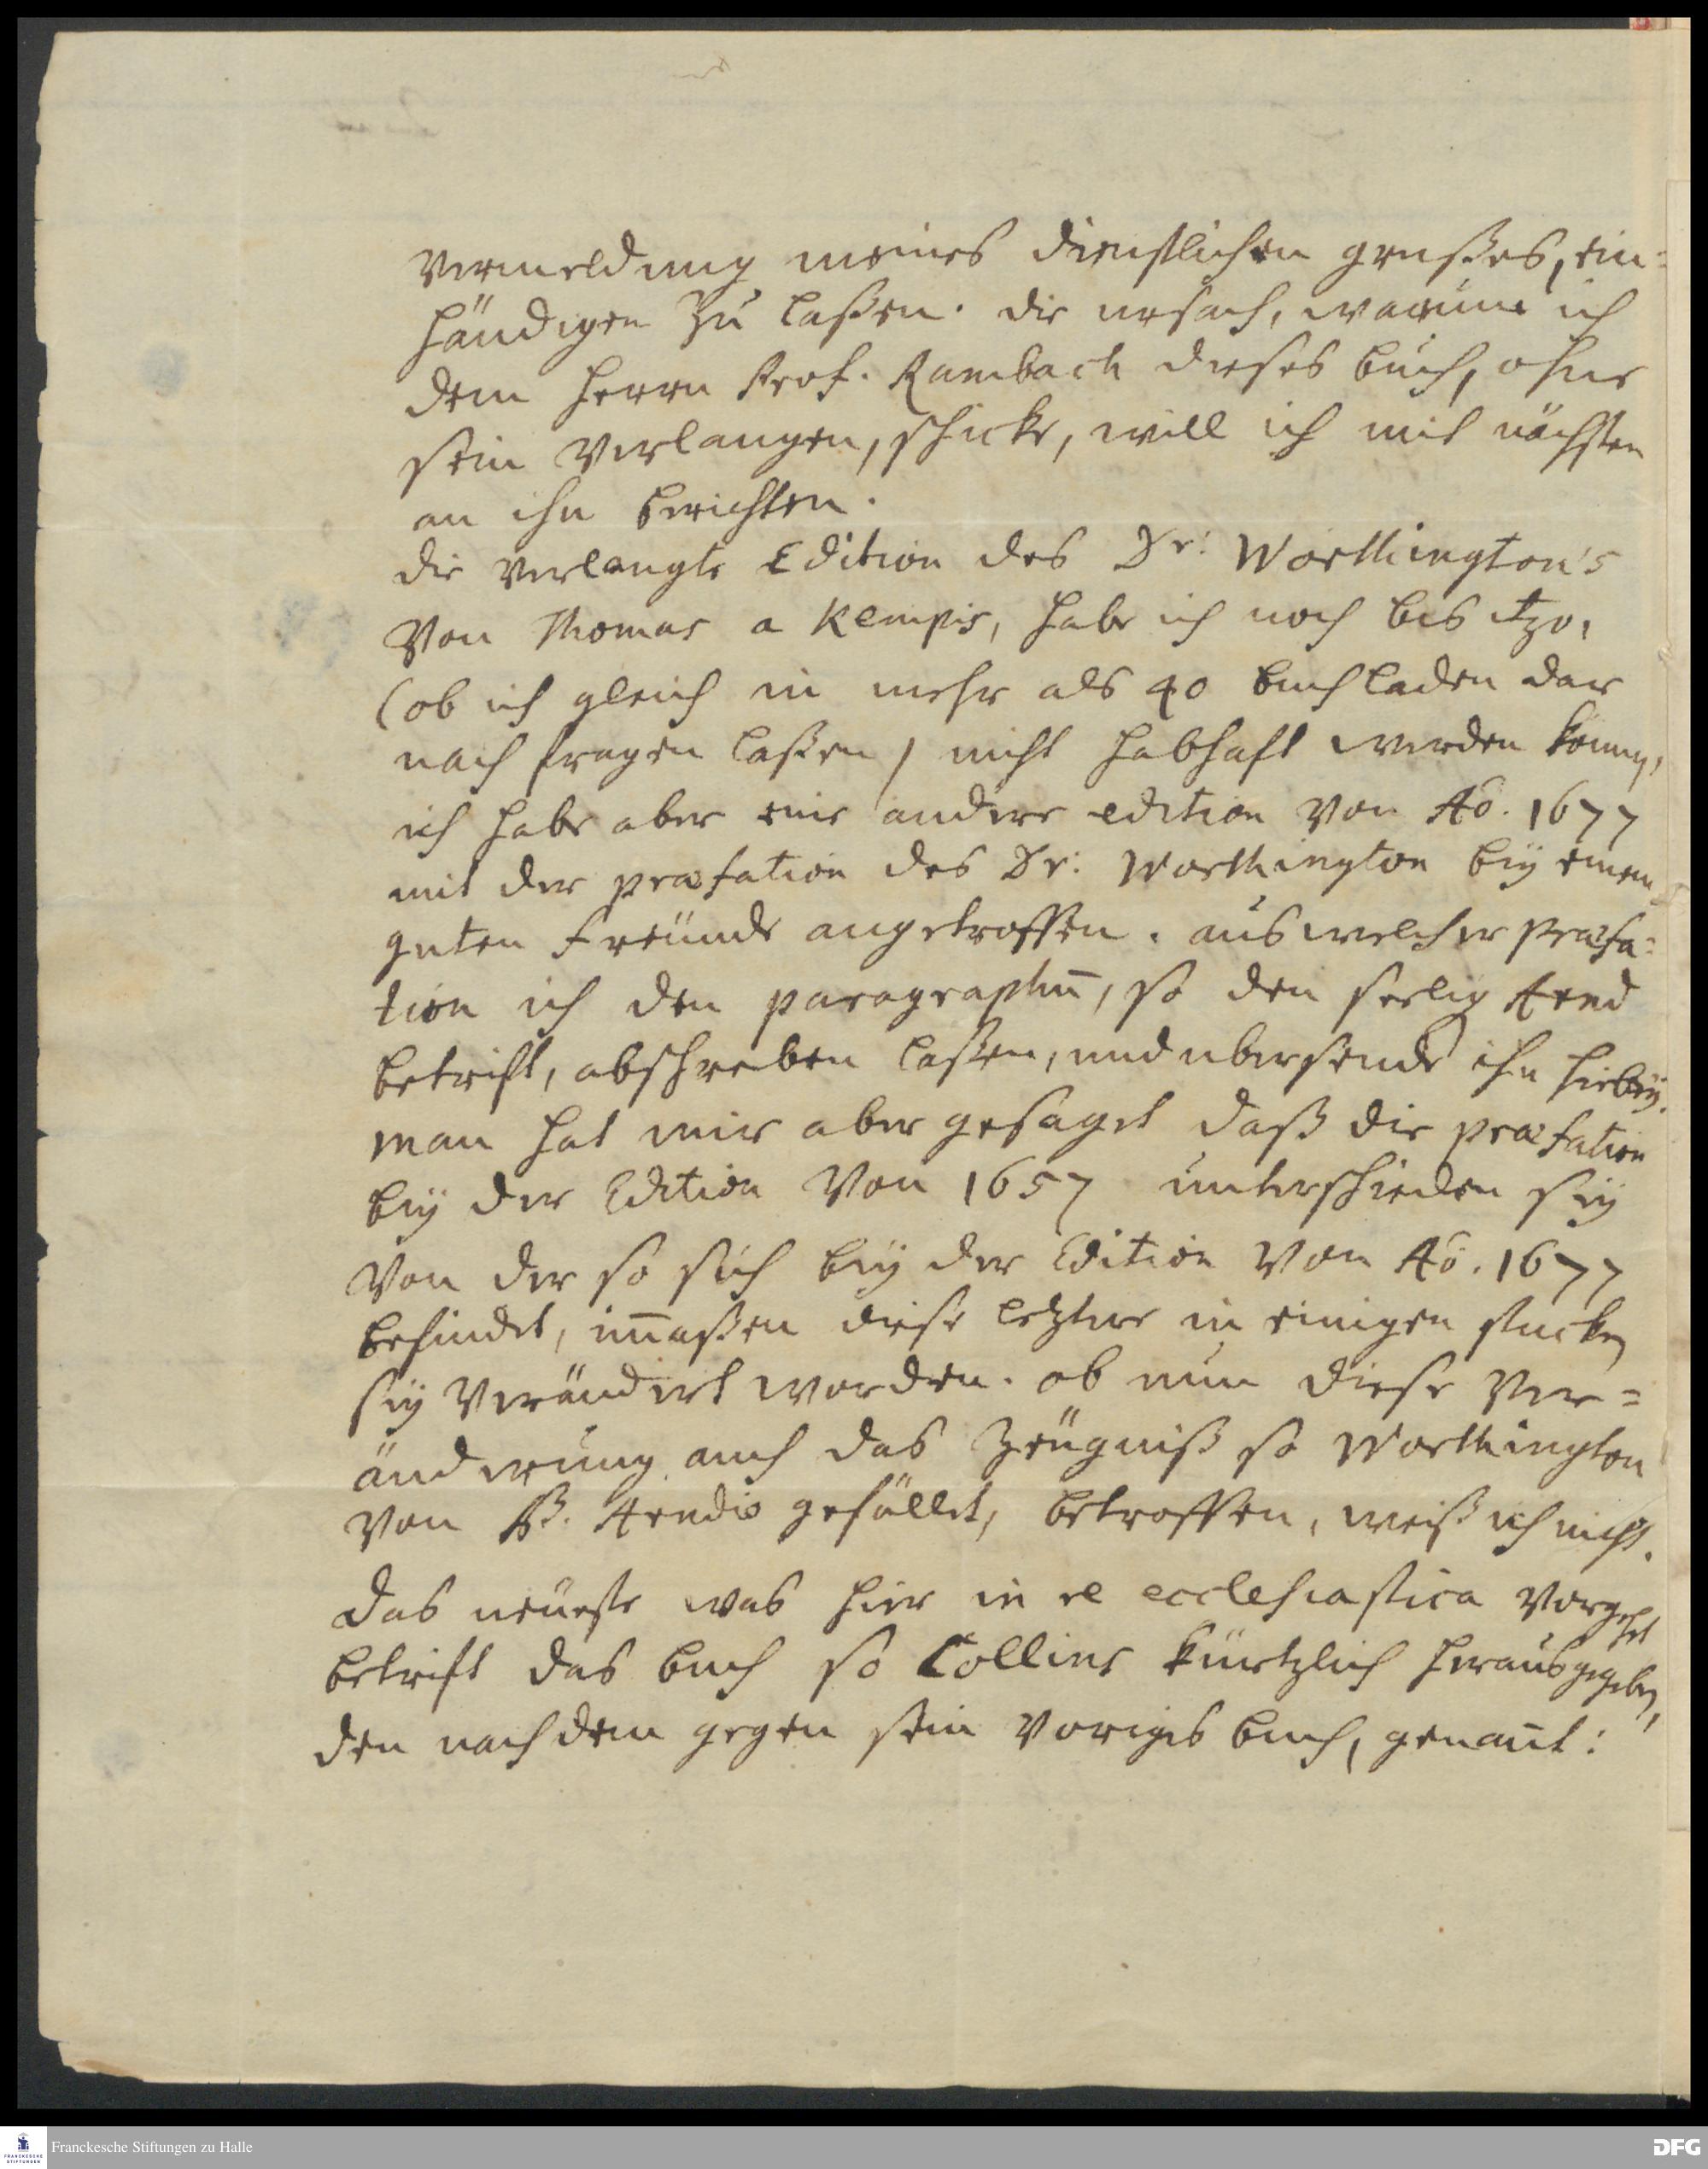 vermeldung meines dienstlichen grußes, ein=
händigen zu laßen. die ursach, warum ich
dem Herrn Prof. Rambach dieses buch, ohne
sein verlangen, schicke, will ich mit nächsten
an ihn berichten.
die verlangte Edition des Dr: Worthington's
von Thomas a Kempis, habe ich noch bis itzo,
(ob ich gleich in mehr als 40 buchladen dar
nach fragen laßen) nicht habhafft werden können,
ich habe aber eine andere edition von Ao. 1677
mit der præfation des Dr: Worthington bey einem
guten Freunde angetroffen. aus welcher præfa=
tion ich den paragraphu̅, so den seelig Arnd
betrifft, abschreiben laßen, und ubersende ihn hiebey.
man hat mir aber gesaget daß die præfation
bey der Edition von 1657 unterschieden sey
von der so sich bey der Edition von Ao. 1677
befindet, im̅aßen diese letztere in einigen stucken
sey verändert worden. ob nun diese Ver=
änderung auch das Zeugniß so Worthington
von B. Arndio gefället, betroffen, weiß ich nicht.
das neueste was hier in re ecclesiastica vorgehet
betrifft das buch so Collins kürtzlich herausgegeben,
den nach dem gegen sein voriges buch, genan̅t:
Franckesche Stiftungen zu Halle
FRANCKESCHE
STIFTUNGEN
DFG